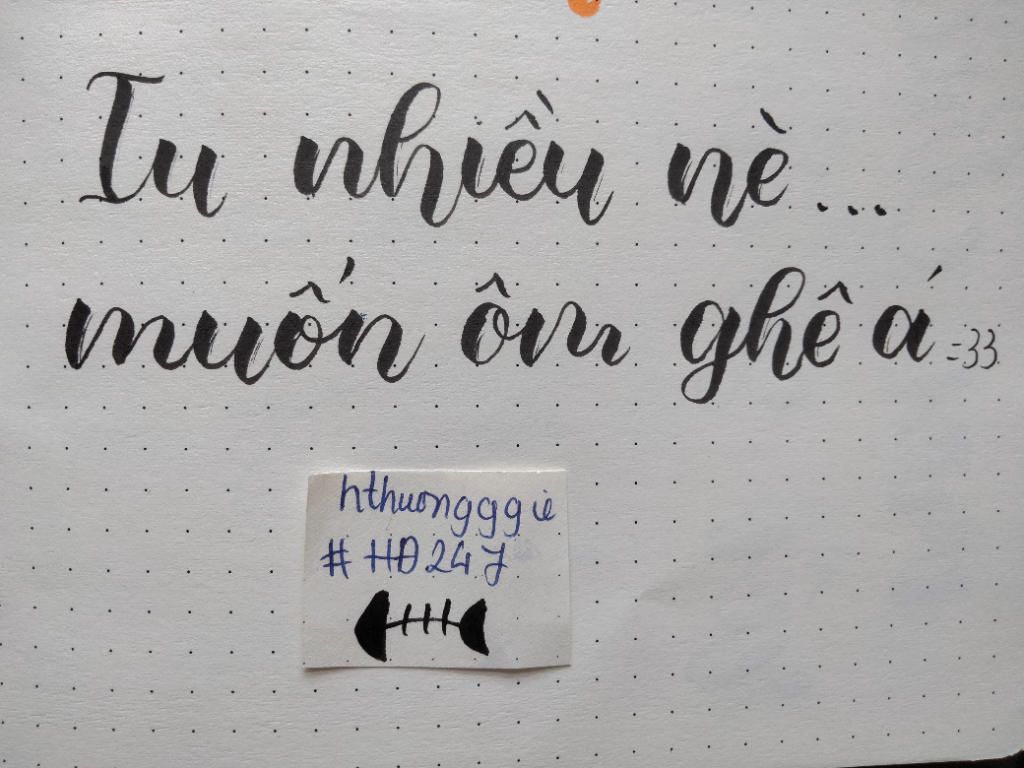 Iu nhiều nè...
muốn ôm ghê á =33
hthuongggie
#HĐ247